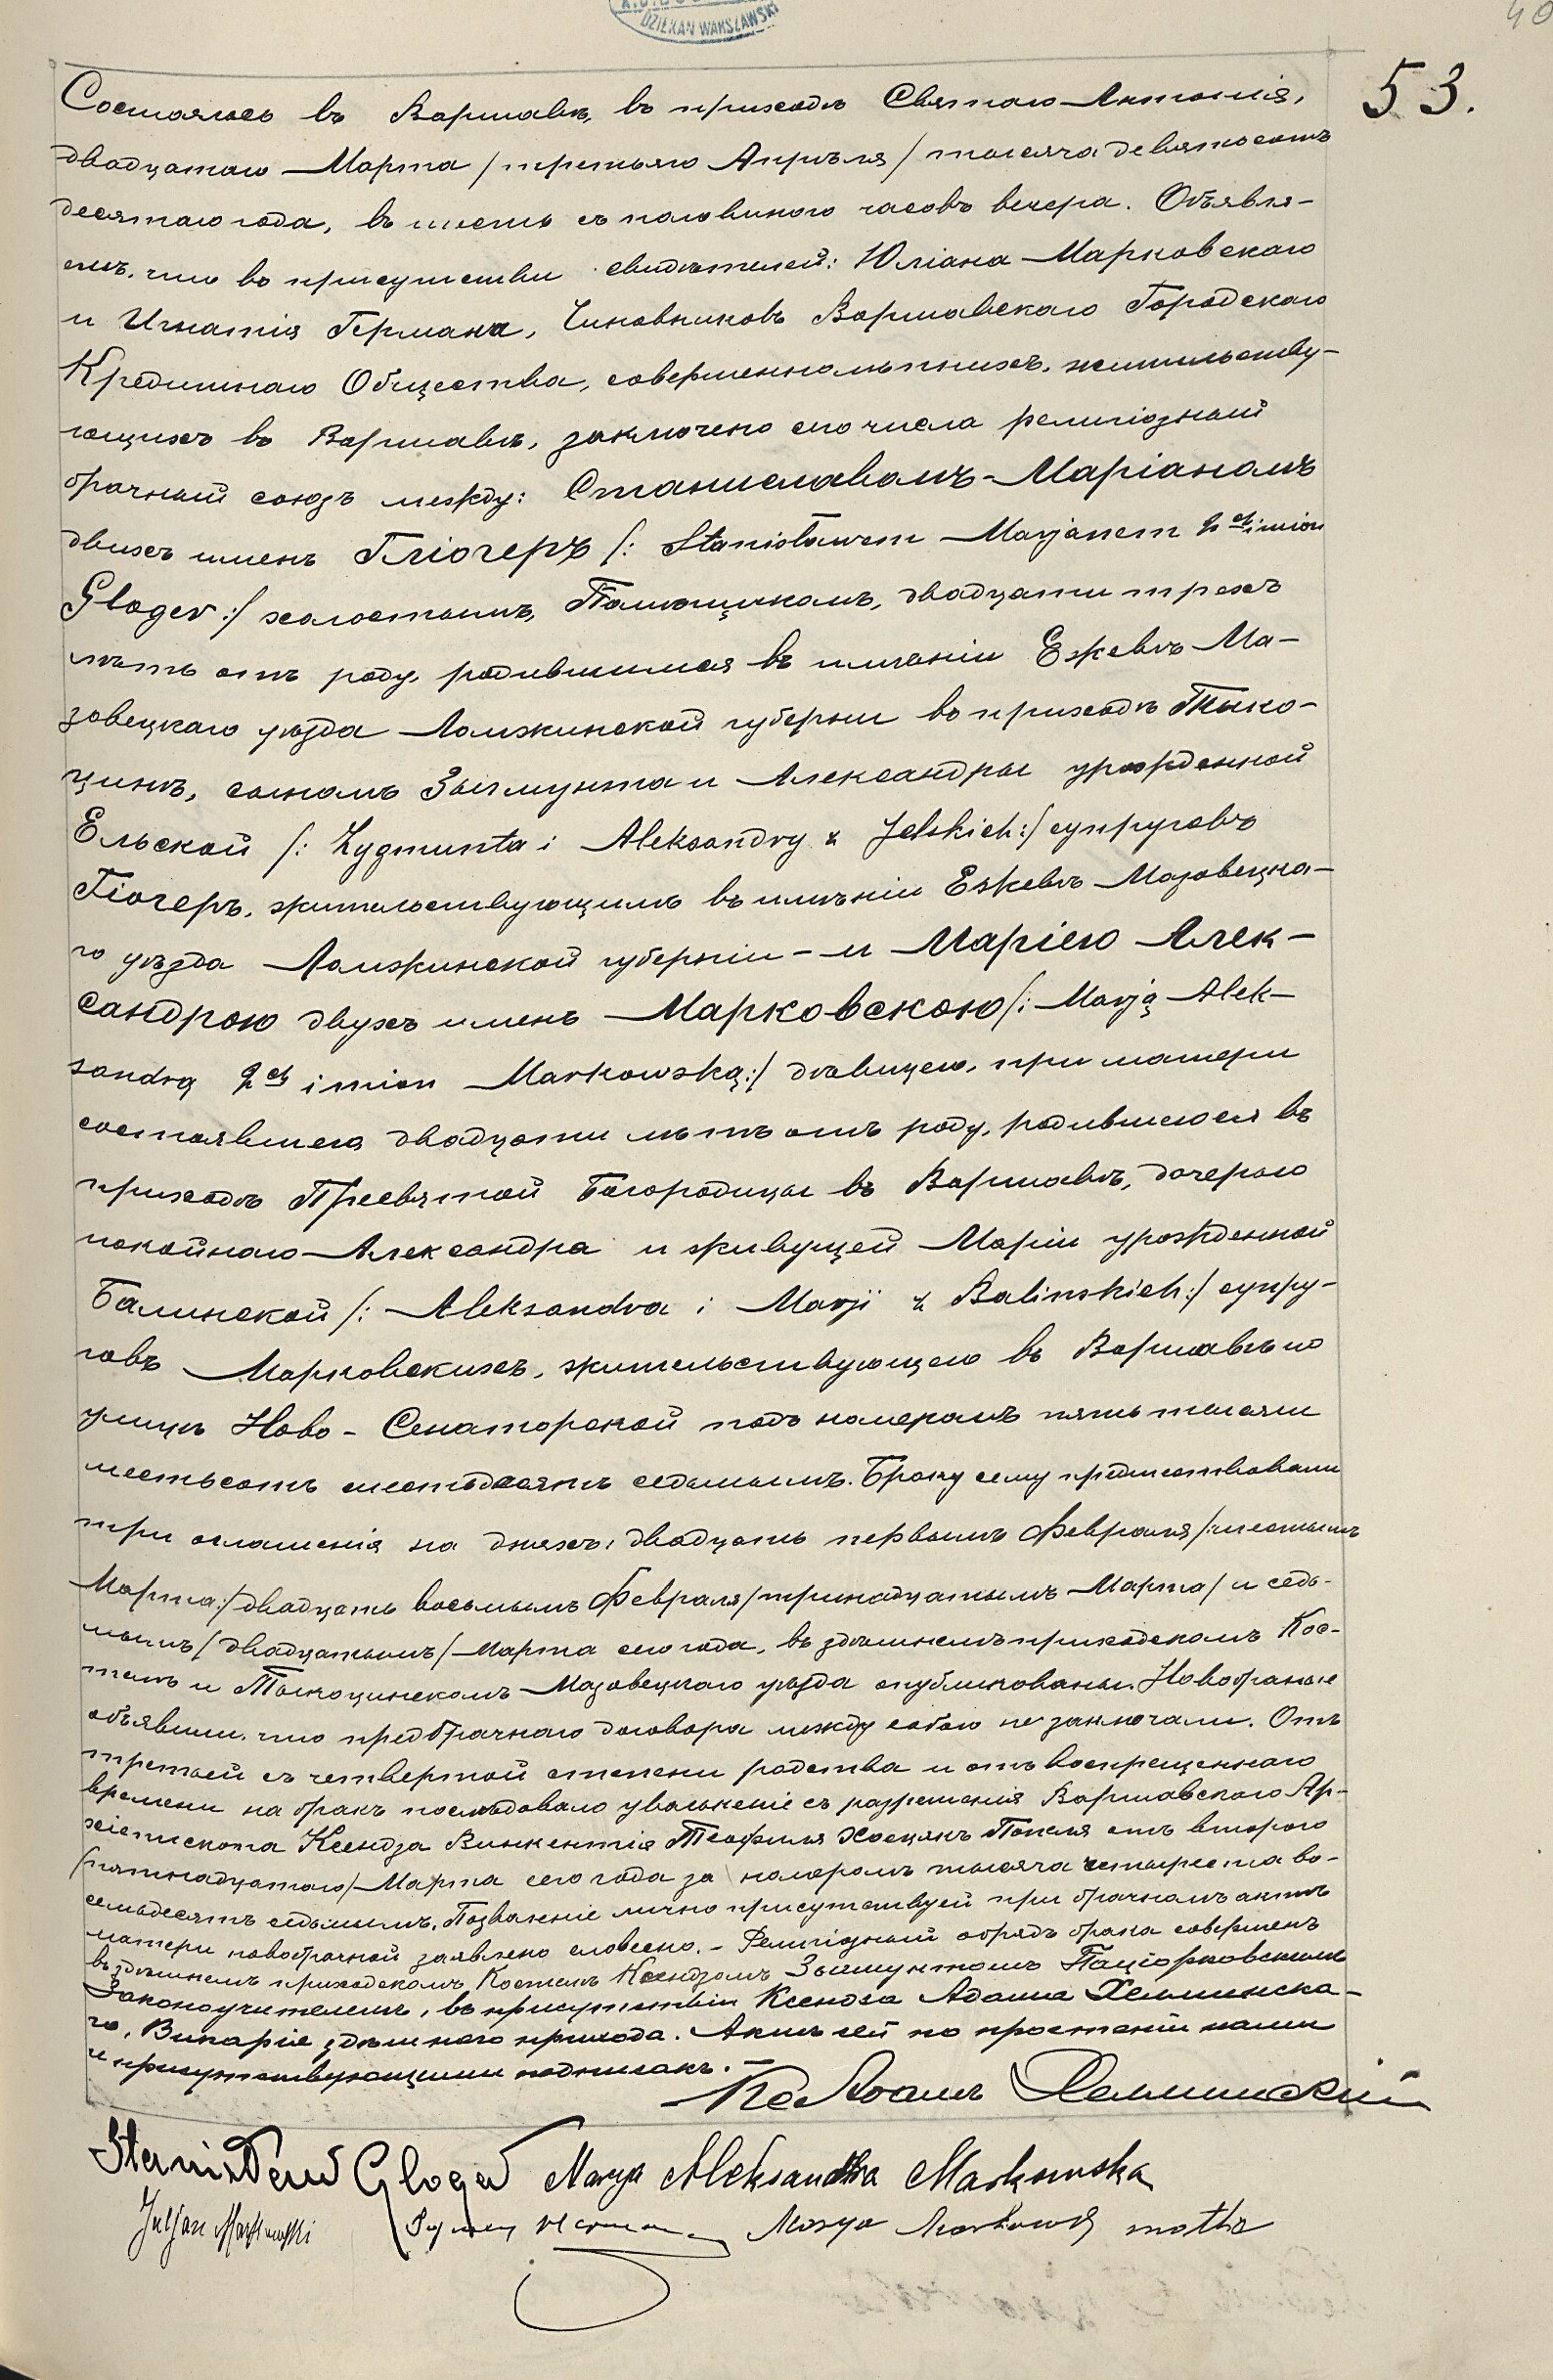 DZIEKAN WARSZAWSKI
40
53.
Состоялось въ Варшавѣ, въ приходѣ Святаго Антонія,
двадцатаго Марта /третьяго Апрѣля/ тысяча девятьсотъ
десятаго года, въ шесть съ половиною часовъ вечера. Объявля-
емъ, что въ присутствіи свидѣтелей: Юліана Марковскаго
и Игнатія Германа, Чиновниковъ Варшавскаго Городскаго
Кредитнаго Общества, совершеннолѣтнихъ, жительству-
ющихъ въ Варшавѣ, заключено сего числа религіозный
брачный союзъ между: Станиславомъ-Маріаномъ
двухъ именъ Гліогеръ /: Stanisławem Marjanem 2ch imion
Gloger :/ холостымъ, Помѣщикомъ, двадцати трехъ
лѣтъ отъ роду, родившимся въ имѣніи Ежевѣ Ма-
зовецкаго уѣзда Ломжинской губерніи въ приходѣ Тыко-
цинѣ, сыномъ Зыгмунта и Александры урожденной
Ельской /: Zygmunta i Aleksandry z Jelskich :/ супруговъ
Гіогеръ, жительствующимъ въ имѣніи Ежевѣ Мазовецка-
го уѣзда Ломжинской губерніи - и Маріею Алек-
сандрою двухъ именъ Марковскою /: Marją Alek-
sandrą 2ch imion Markowską :/ дѣвицею, при матери
состоявшею двадцати лѣтъ отъ роду, родившеюся въ
приходѣ Пресвятой Богородицы въ Варшавѣ, дочерью
покойнаго Александра и живущей Маріи урожденной
Балинской /: Aleksandra i Marji z Balinskich :/ супру-
говъ Марковскихъ, жительствующею въ Варшавѣ по
улицѣ Ново-Сенаторской подъ номеромъ пять тысячи
шестьсотъ шестьдесятъ седьмымъ. Браку сему предшествовали
три оглашенія на дняхъ: двадцать первымъ Февраля /: шестымъ
Марта :/ двадцать восьмымъ Февраля /тринадцатымъ Марта/ и седь-
мымъ /двадцатымъ/ Марта сего года, въ здѣшнемъ приходскомъ Кос-
телѣ и Тыкоцинскомъ Мазовецкаго уѣзда опубликованы. Новобрачные
объявили, что предбрачнаго договора между собою не заключали. Отъ
третьей съ четвертой степени родства и отъ воспрещеннаго
времени на бракъ послѣдовало увольненіе съ разрешенія Варшавскаго Ар-
хіепископа Ксендза Винкентія Теофиля Хосцякъ Попеля отъ второго
/пятнадцатаго/ Марта сего года за номеромъ тысяча четыреста во-
семьдесятъ седьмымъ. Позволеніе лично присутствуей при брачномъ актѣ
матери новобрачной заявлено словесно. - Религіозный обрядъ брака совершенъ
въ здѣшнемъ приходскомъ Костелѣ Ксендзомъ Зыгмунтомъ Паціорковскимъ
Законоучителемъ, въ присутствіи Ксендза Адама Хелминска-
го, Викарія здѣшнего прихода. Актъ сей по прочтеніи нами
и присутствующими подписанъ. -
Кс Адамъ Хелминскій
Stanisław Gloger Marya Aleksandra Markowska
Juljan Markowski Ignacy Herman Marya Markowska matka